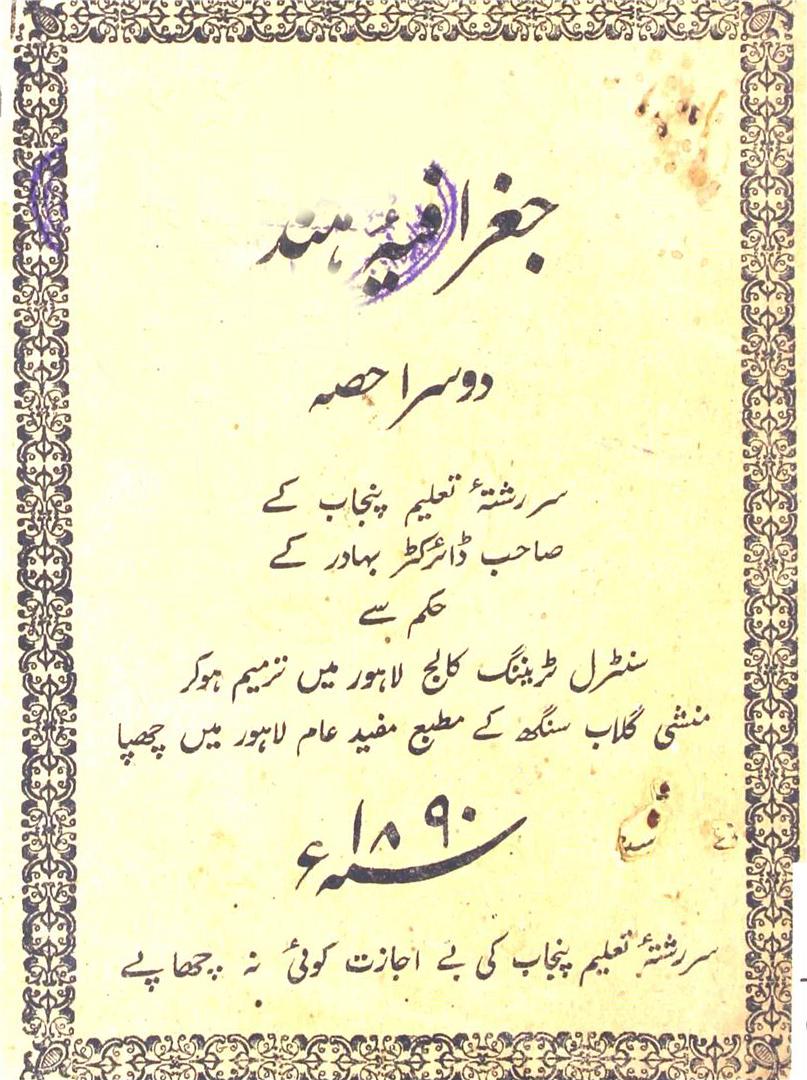 جغرافیۂ ہند
دوسرا حصہ
سررشتۂ تعلیم پنجاب کے
صاحب ڈائرکٹر بہادر کے
حکم سے
سنٹرل ٹریننگ کالج لاہور میں ترمیم ہوکر
منشی گلاب سنگھ کے مطبع مفید عام لاہور میں چھپا
سنہ ۱۸۹۰ء
سررشتۂ تعلیم پنجاب کی بے اجازت کوئی نہ چھاپے